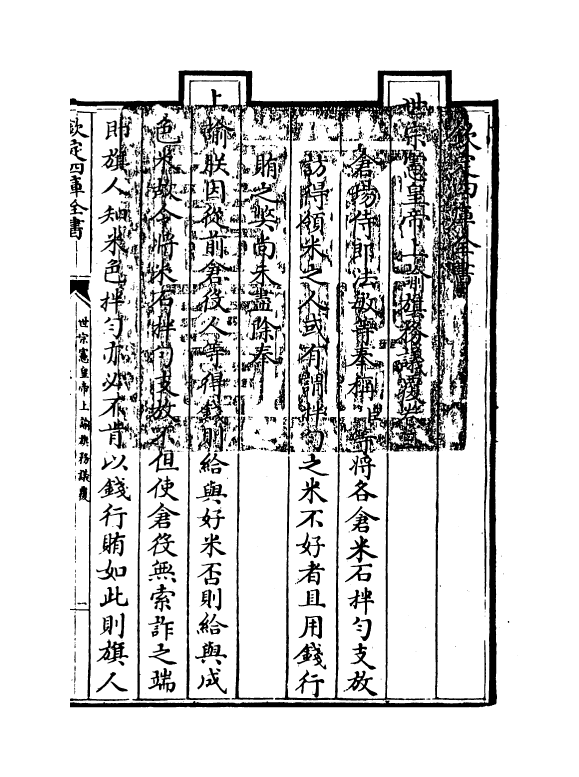 欽定四庫全書
世宗憲皇帝上諭旗務議覆卷
倉場侍郎法敏等奏稱臣等將各倉米石拌勻支放
訪得領米之人或有謂拌勻之米不好者且用錢行
賄之弊尚未盡除奏
上
諭朕因從前倉役人等得錢則給與好米否則給與成
色米故令將米石拌勻支放不但使倉役無索詐之端
即旗人知米色拌勻亦必不肯以錢行賄如此則旗人
欽定四庫全書
世宗憲皇帝上諭旗務議覆
一